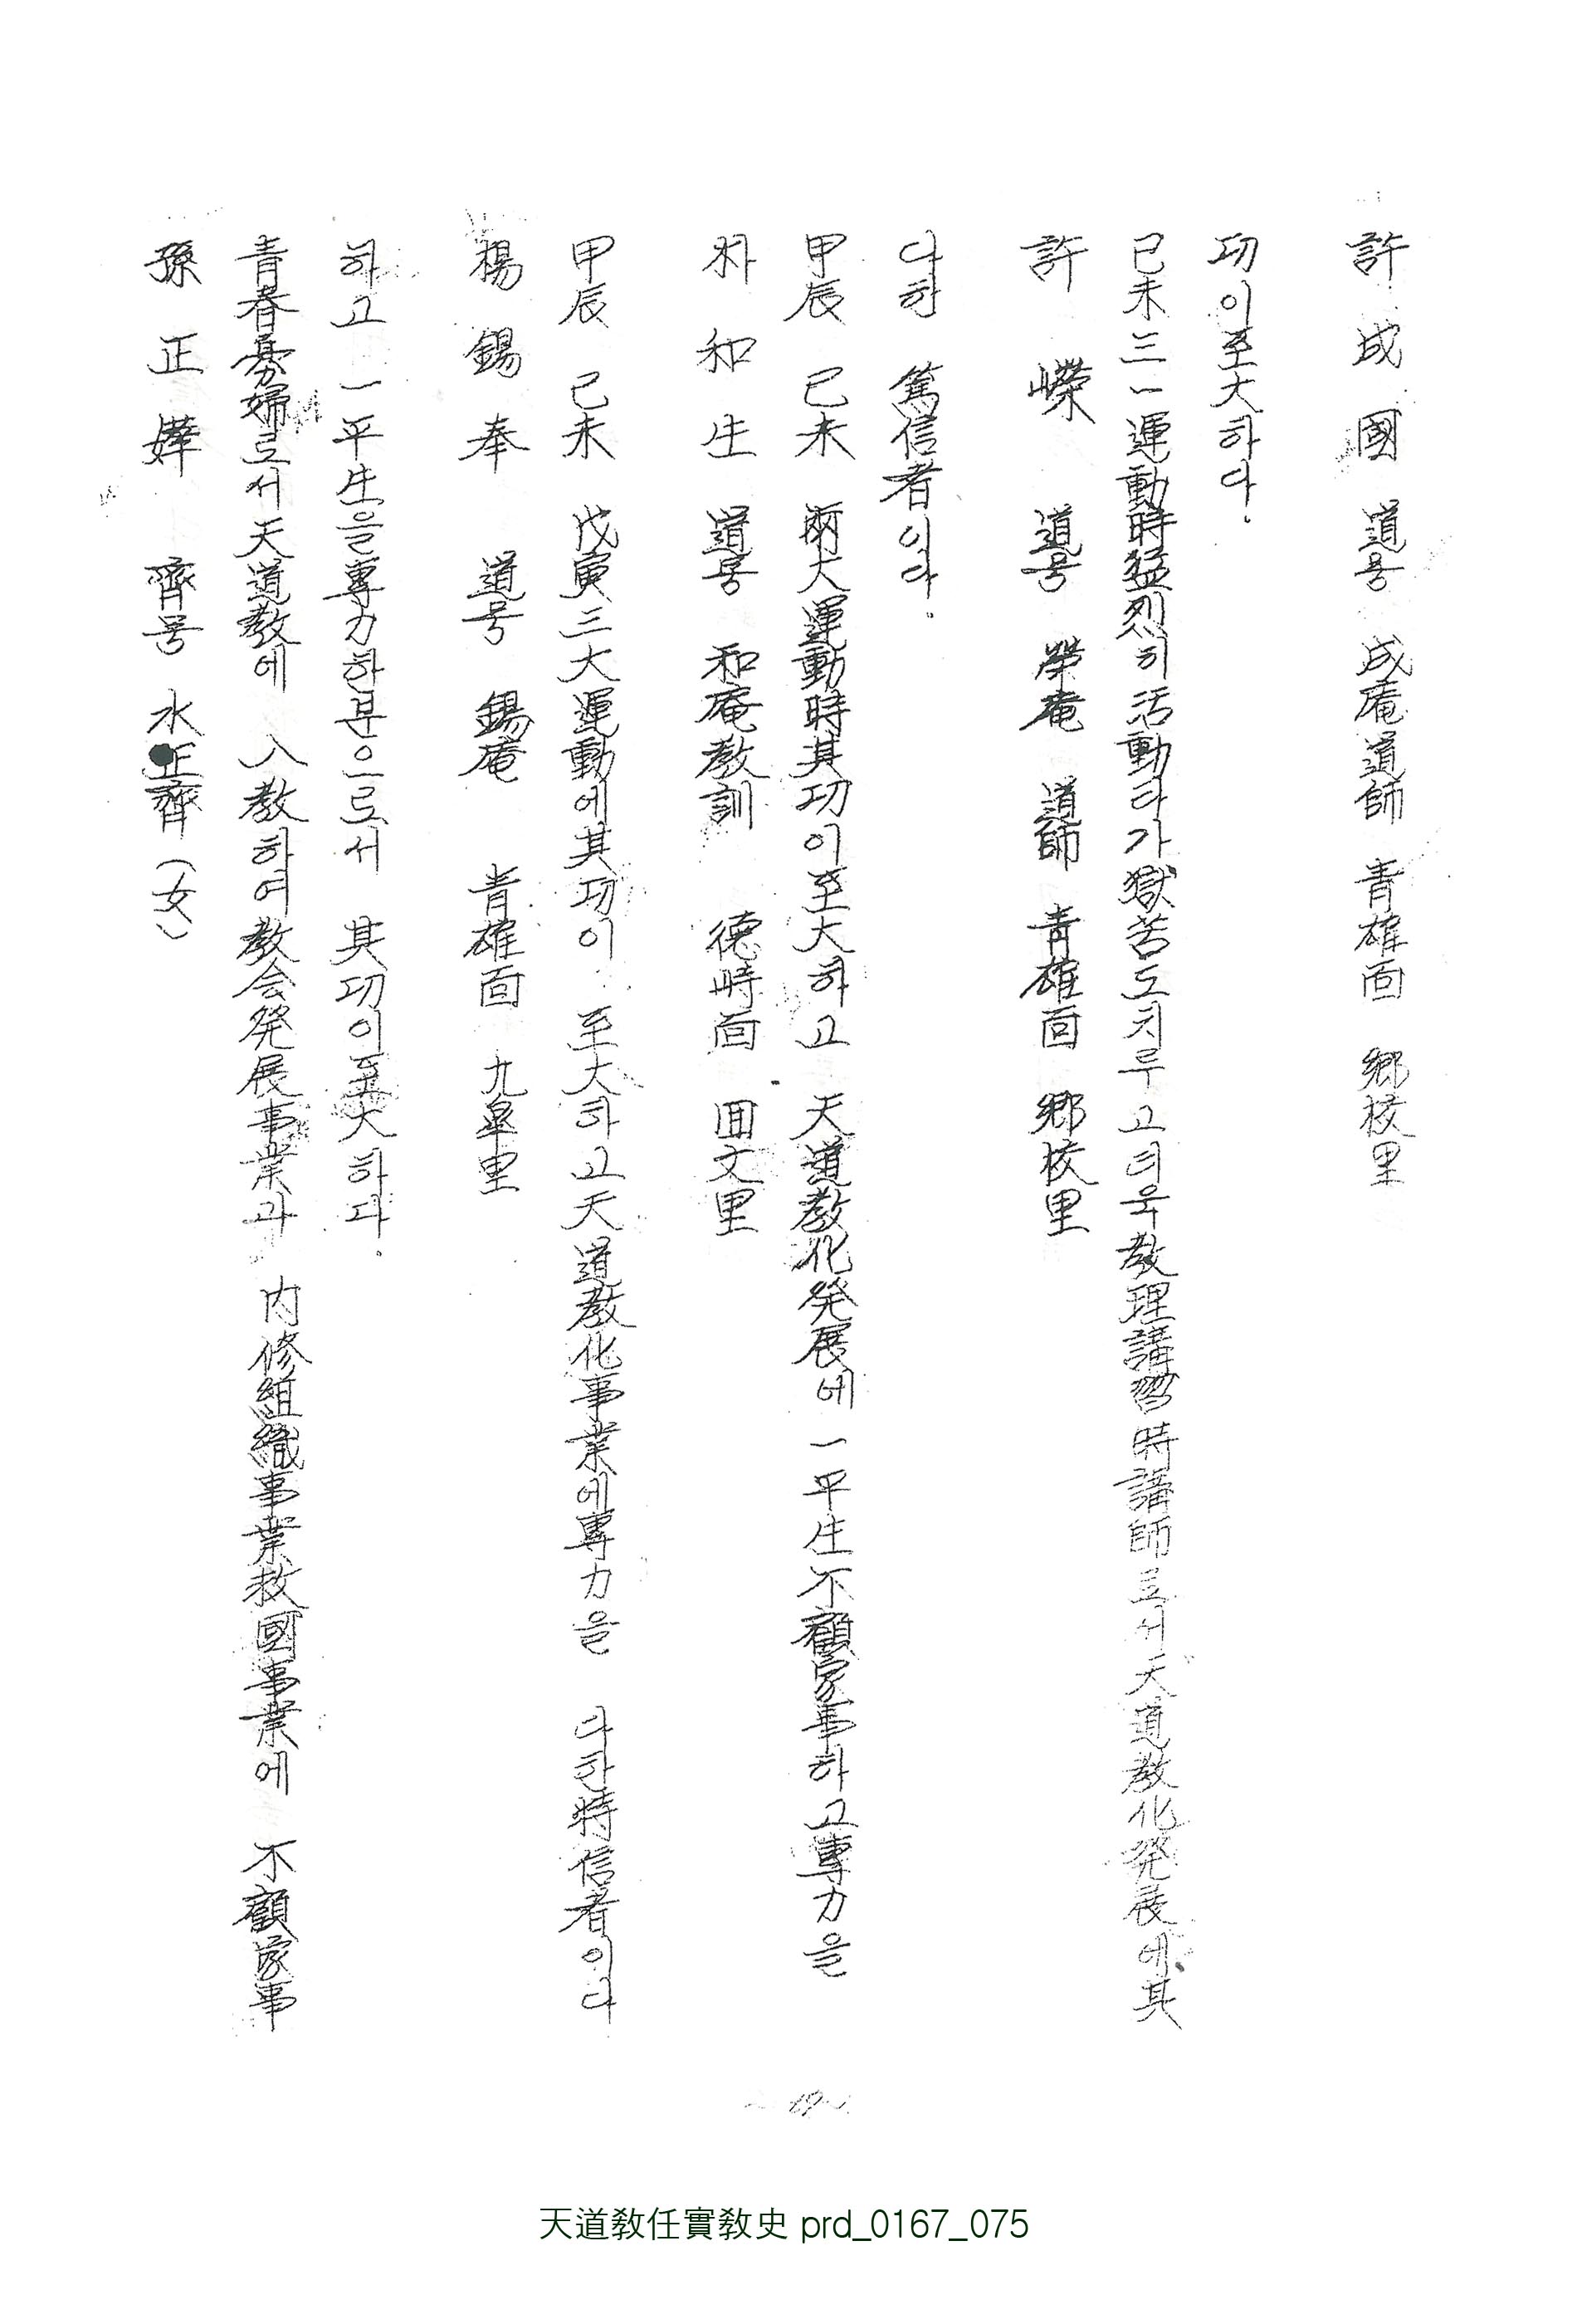 孫正嬅 齊号 水正齊(女)
青春寡婦로서天道教에 入教하여教会発展事業과 内修組織事業救國事業에 不顧家事
하고 一平生을專力하분으로서 其功이至大하다.
楊錫奉 道号 錫庵 青雄面 九皐里
甲辰 己未 戊寅三大運動에其功이 至大하고天道教化事業에專力을 다하特信者이다
朴和生 道号 和庵教訓 德峙面 回文里
甲辰 己未 兩大運動時其功이至大하고 天道教化発展에一平生不顧家事하고專力을
다하 篤信者이다.
許嶸 道号 嶸庵 道師 青雄面 鄕校里
己未三一運動時猛烈히活動타가獄苦도치루고더욱教理講習時講師로서天道教化発展에其
功이至大하다.
許成國 道号 成庵道師 青雄面 鄕校里
天道敎任實敎史 prd_0167_075